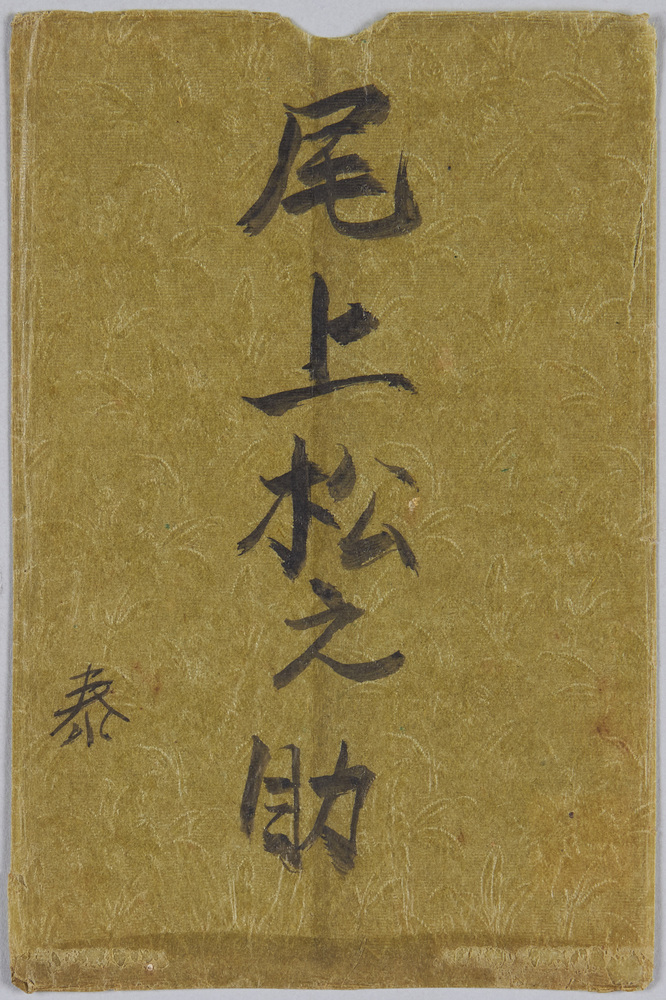 尾上松之助
泰